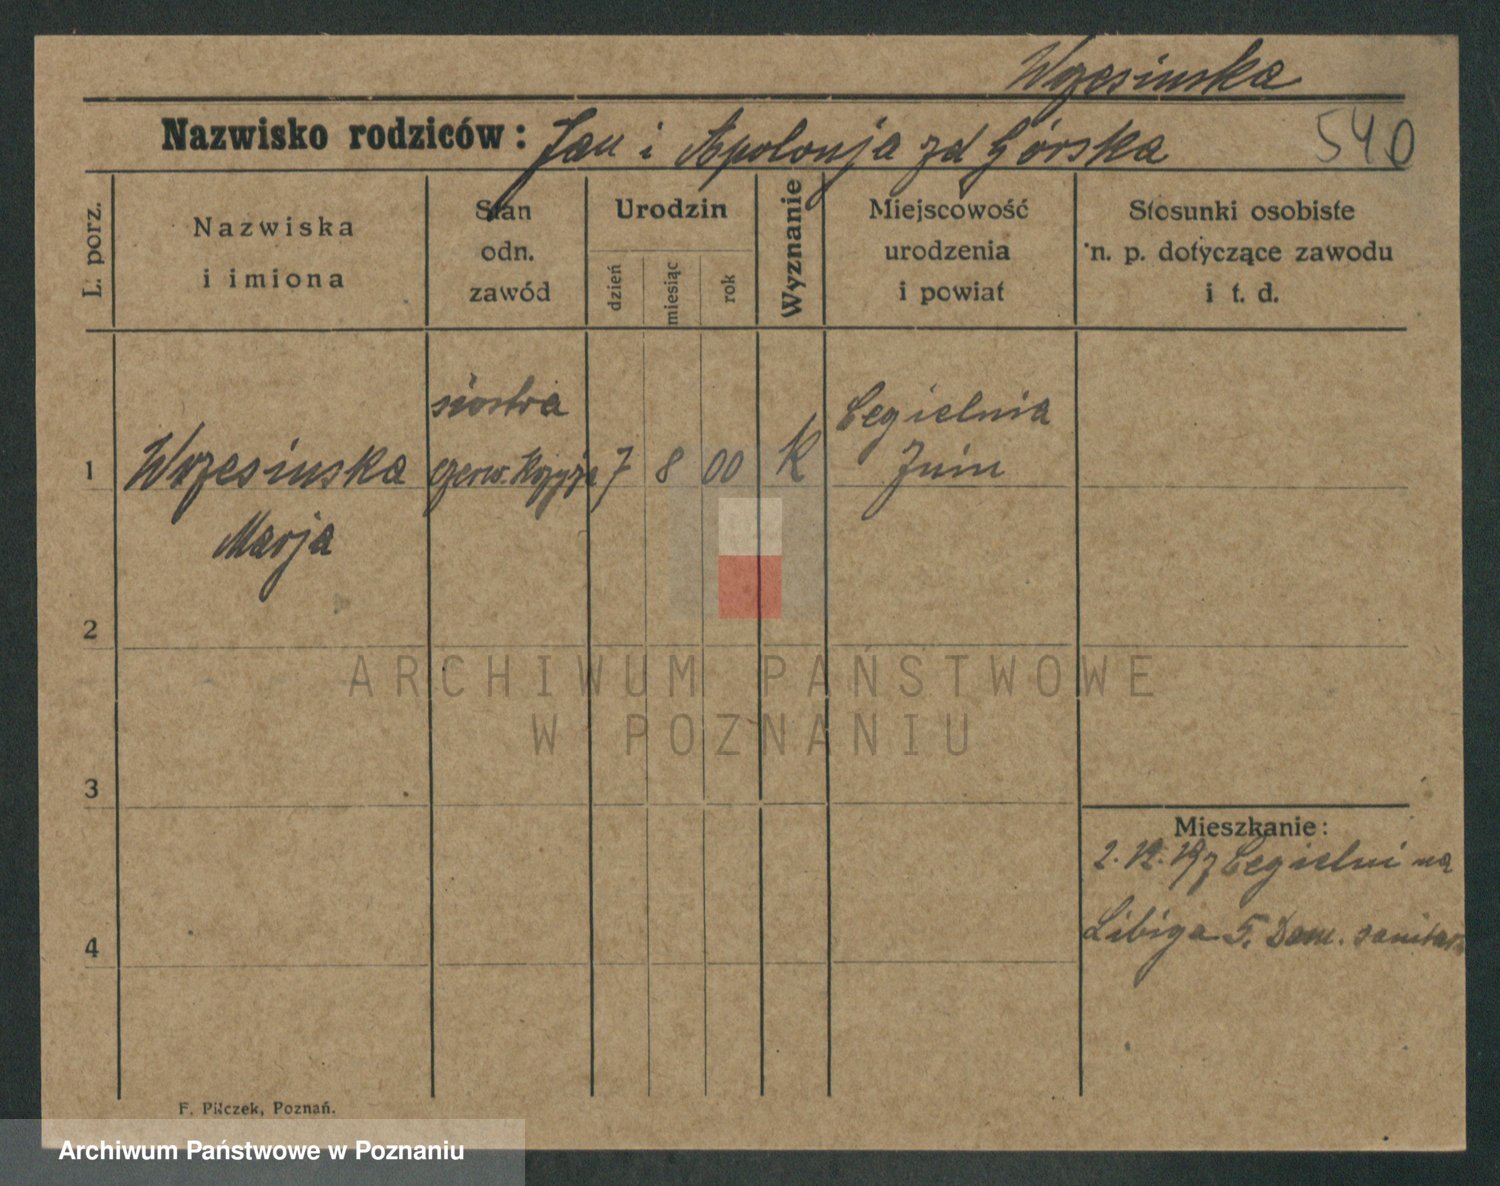 Wrzesinska
Nazwisko rodziców: Jan i Apolonja zd Górska 540
L. porz.
Nazwiska
i imiona
Stan
odn.
zawód
Urodzin
dzień
miesiąc
rok
Wyznanie
Miejscowość
urodzenia
i powiat
Stosunki osobiste
n. p. dotyczące zawodu
i t. d.
siostra
Cegielnia
1 Wrzesinska czerw. Krzyża 7 8 00 K Żnin
Marja
2
ARCHIWUM PAŃSTWOWE
W POZNANIU
3
Mieszkanie:
2. Cegielni na
4 Libiga 5. Dom. sanitar
F. Pilczek, Poznań.
Archiwum Państwowe w Poznaniu